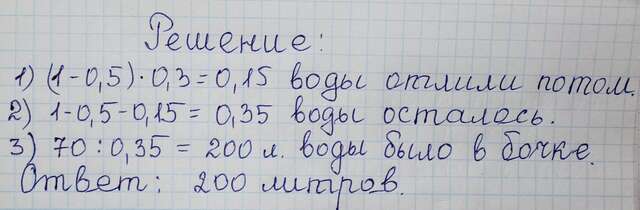 Решение:
1) (1-0,5)·0,3=0,15 воды отлили потом.
2) 1-0,5-0,15= 0,35 воды осталось.
3) 70:0,35 = 200 л. воды было в бочке.
Ответ: 200 литров.